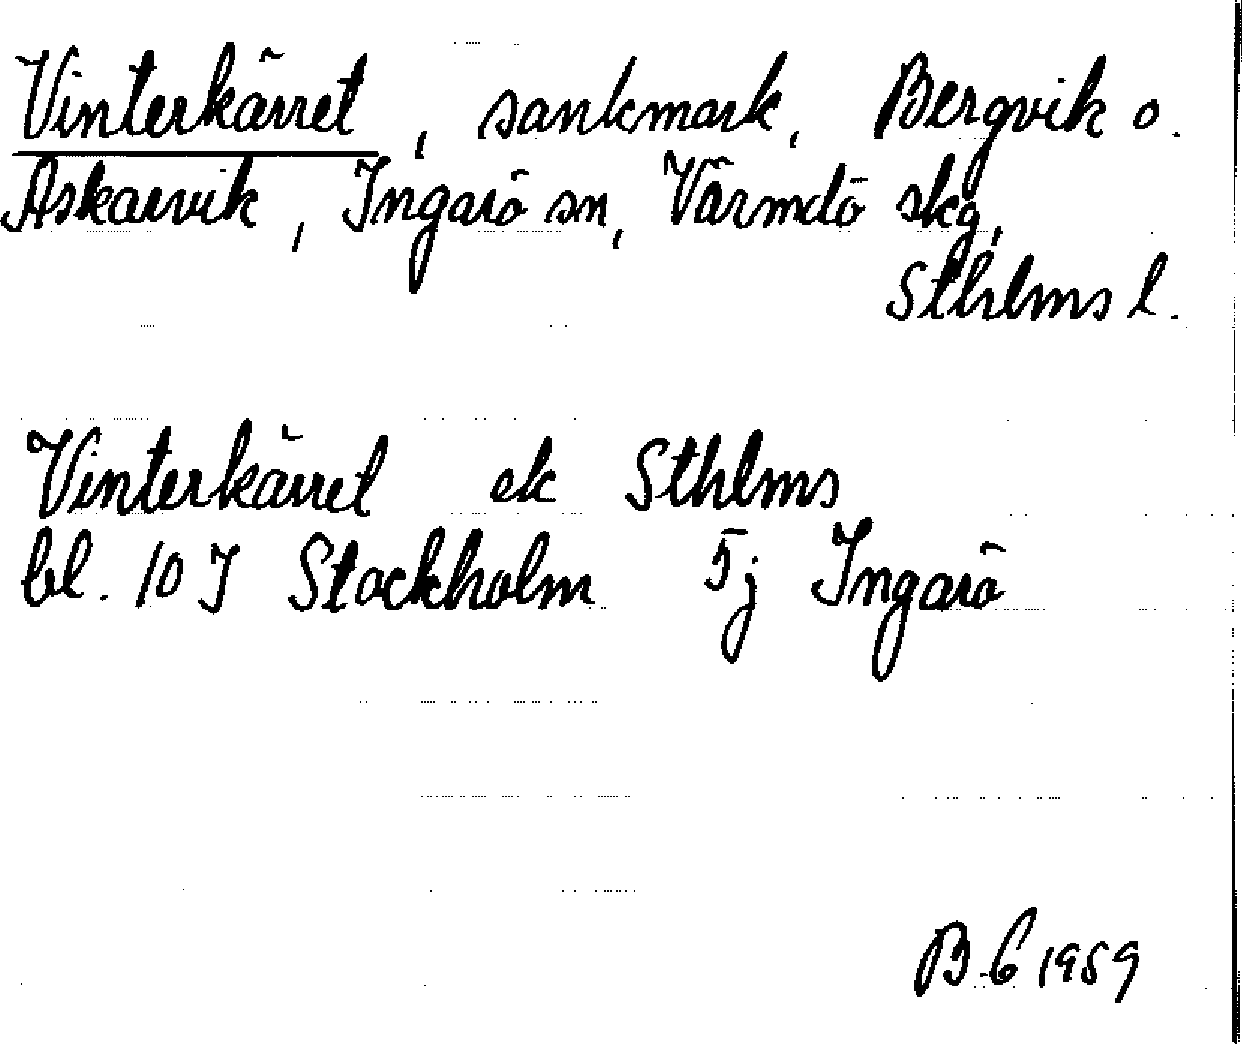 Vinterkärret, sankmark, Bergvik o.
Askarvik, Ingarö sn, Värmdö skg,
Sthlms l.
Vinterkärret ek Sthlms
bl. 10 J Stockholm 5j Ingarö
B.G 1959